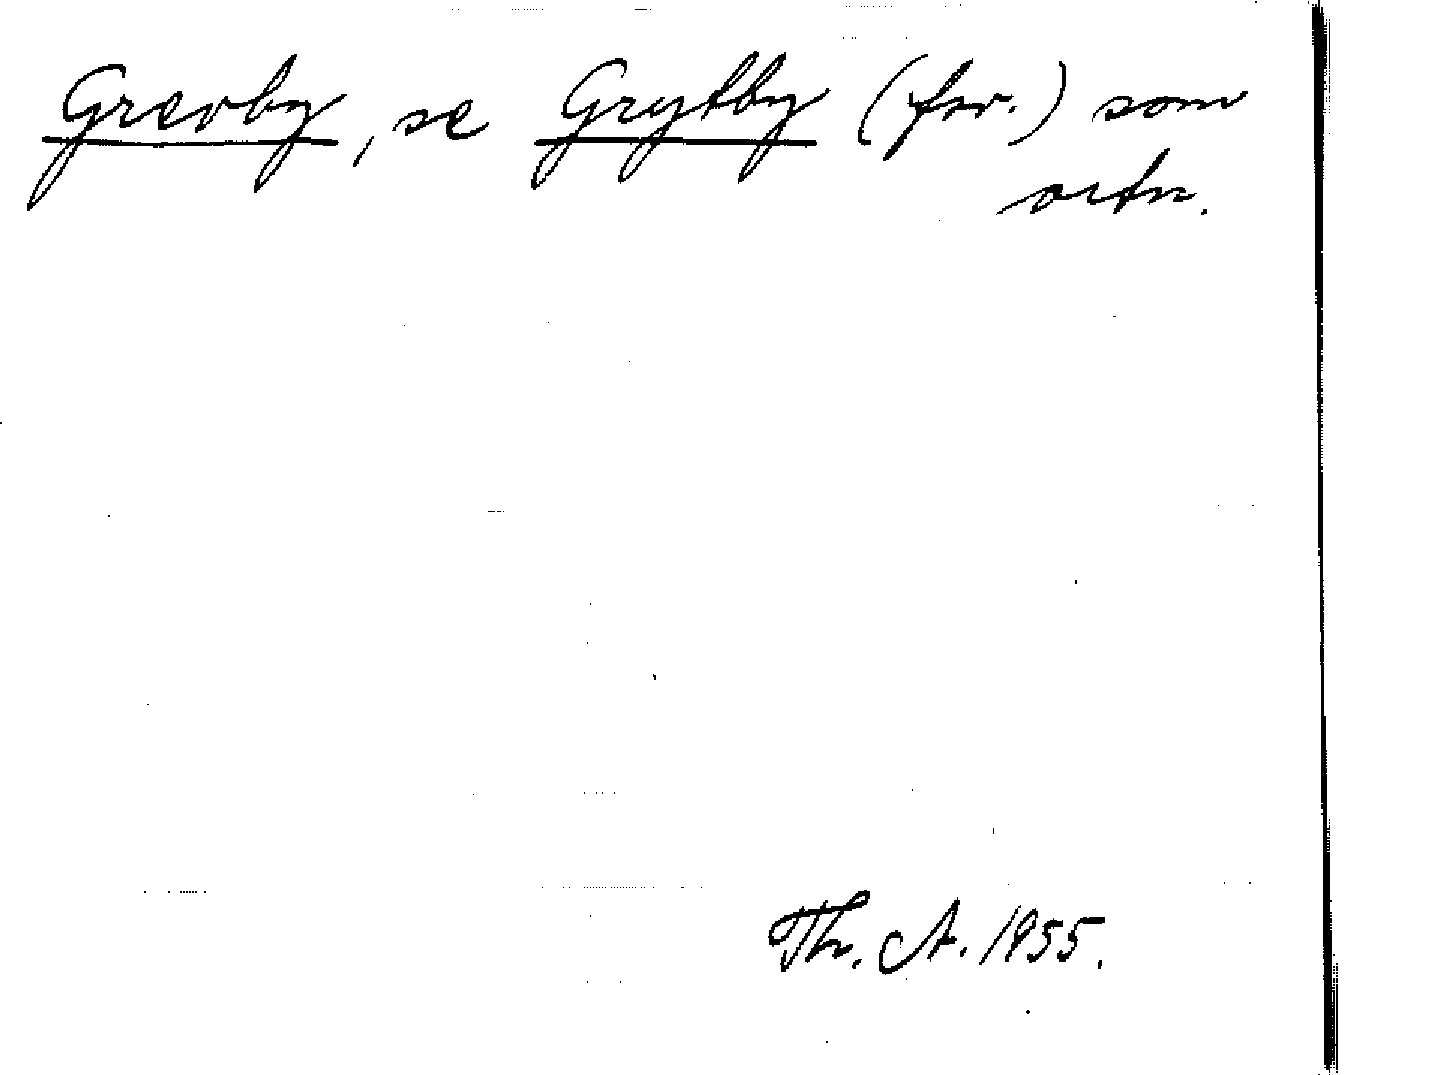 Grevby, se Grytby (fsv.) som
ortn.
Th. A. 1955.